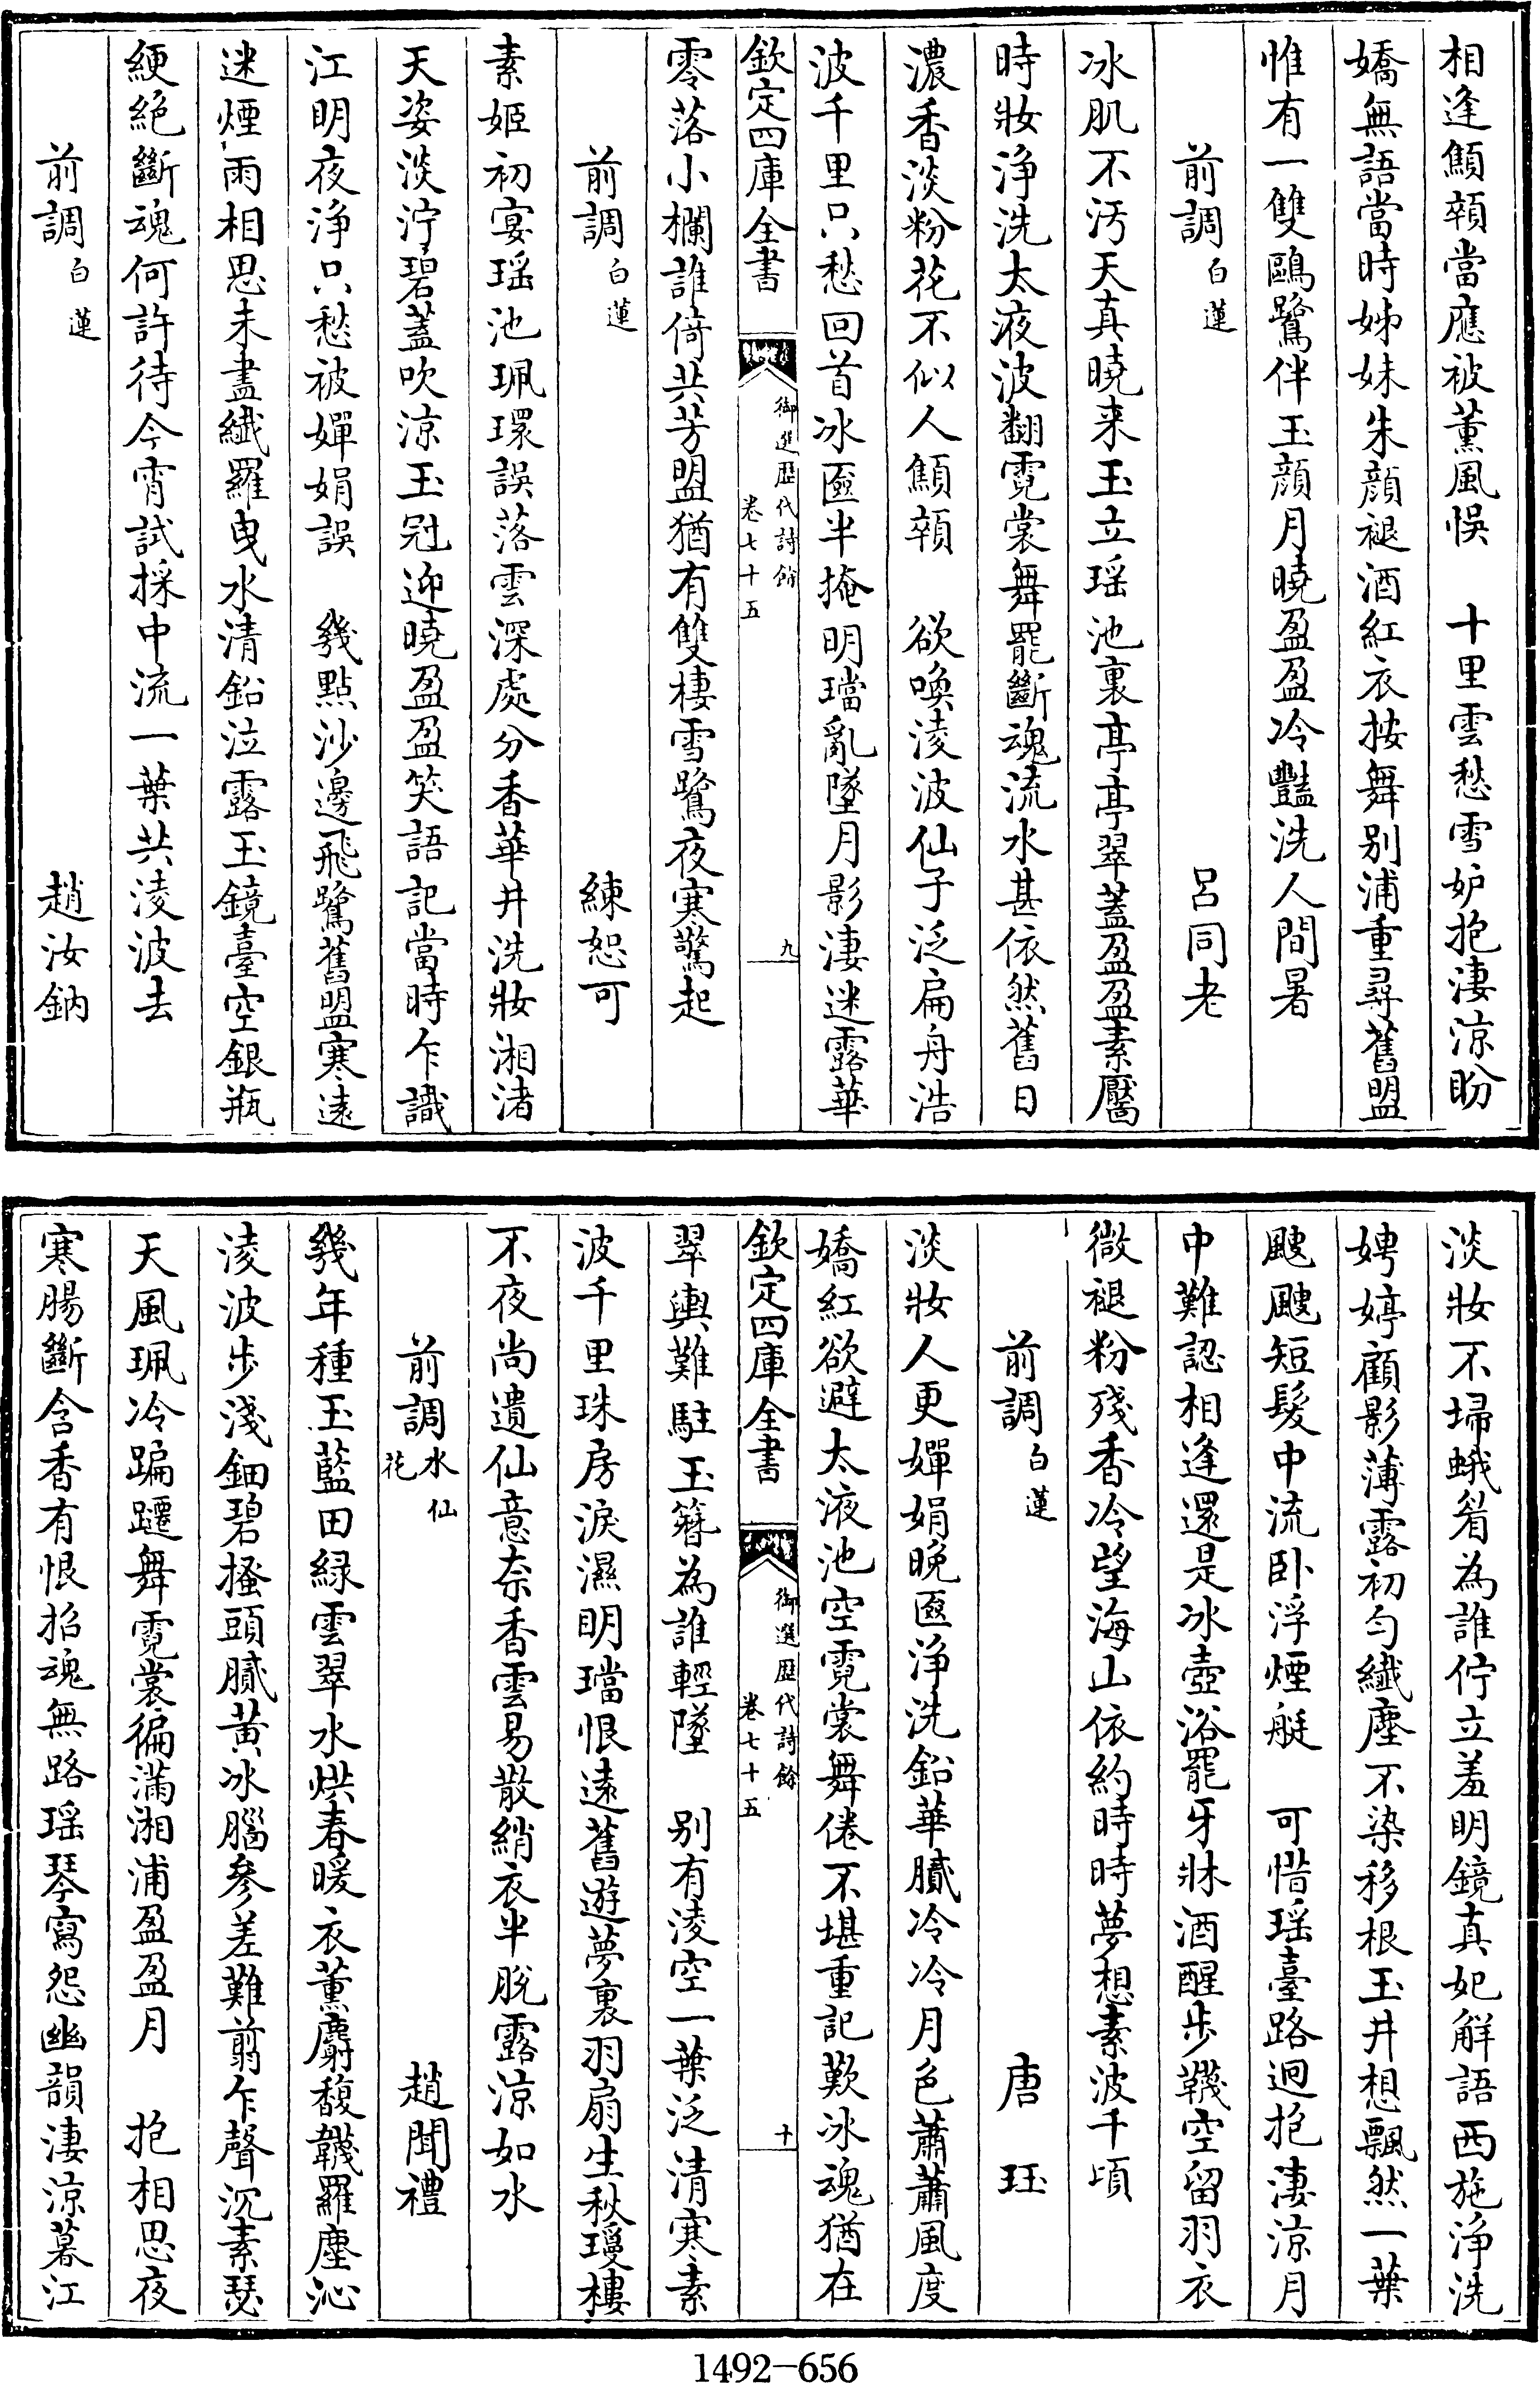 相逢顦顇當應被薰風悞　十里雲愁雪妒抱淒涼盼
嬌無語當時姊妹朱顔褪酒紅衣按舞别浦重尋舊盟
惟有一雙鷗鷺伴玉顔月曉盈盈冷豔洗人間暑
前調白蓮　吕同老
冰肌不汚天真曉来玉立瑶池裏亭亭翠蓋盈盈素靨
時妝浄洗太液波翻霓裳舞罷斷魂流水甚依然舊日
濃香淡粉花不似人顦顇　欲喚淩波仙子泛扁舟浩
波千里只愁回首冰匳半掩明璫亂墜月影淒迷露華
欽定四庫全書　御選歴代詩餘　卷七十五　九
零落小欄誰倚共芳盟猶有雙棲雪鷺夜寒驚起
前調白蓮　練恕可
素姬初宴瑶池珮環誤落雲深處分香華井洗妝湘渚
天姿淡泞碧蓋吹涼玉冠迎曉盈盈笑語記當時乍識
江明夜浄只愁被嬋娟誤　幾點沙邊飛鷺舊盟寒遠
迷煙雨相思未盡纖羅曳水清鉛泣露玉鏡臺空銀瓶
綆絶斷魂何許待今宵試採中流一葉共淩波去
前調白蓮　趙汝鈉
淡妝不埽蛾眉為誰佇立羞明鏡真妃解語西施浄洗
娉婷顧影薄露初勻纖塵不染移根玉井想飄然一葉
颼颼短髮中流卧浮煙艇　可惜瑶臺路迥抱淒涼月
中難認相逢還是冰壺浴罷牙牀酒醒步韈空留羽衣
微褪粉殘香冷望海山依約時時夢想素波千頃
前調白蓮　唐珏
淡妝人更嬋娟晚匳浄洗鉛華膩冷冷月色蕭蕭風度
嬌紅欲避太液池空霓裳舞倦不堪重記歎冰魂猶在
欽定四庫全書　御選歴代詩餘　卷七十五　十
翠輿難駐玉簪為誰輕墜　别有淩空一葉泛清寒素
波千里珠房淚濕明璫恨遠舊遊夢裏羽扇生秋瓊樓
不夜尚遺仙意奈香雲易散綃衣半脫露涼如水
前調水仙花　趙聞禮
幾年種玉藍田緑雲翠水烘春暖衣薰麝馥韈羅塵沁
淩波步淺鈿碧搔頭膩黄冰腦參差難翦乍聲沉素瑟
天風珮冷蹁躚舞霓裳徧滿湘浦盈盈月　抱相思夜
寒腸斷含香有恨招魂無路瑶琴寫怨幽韻淒涼暮江
1492—656